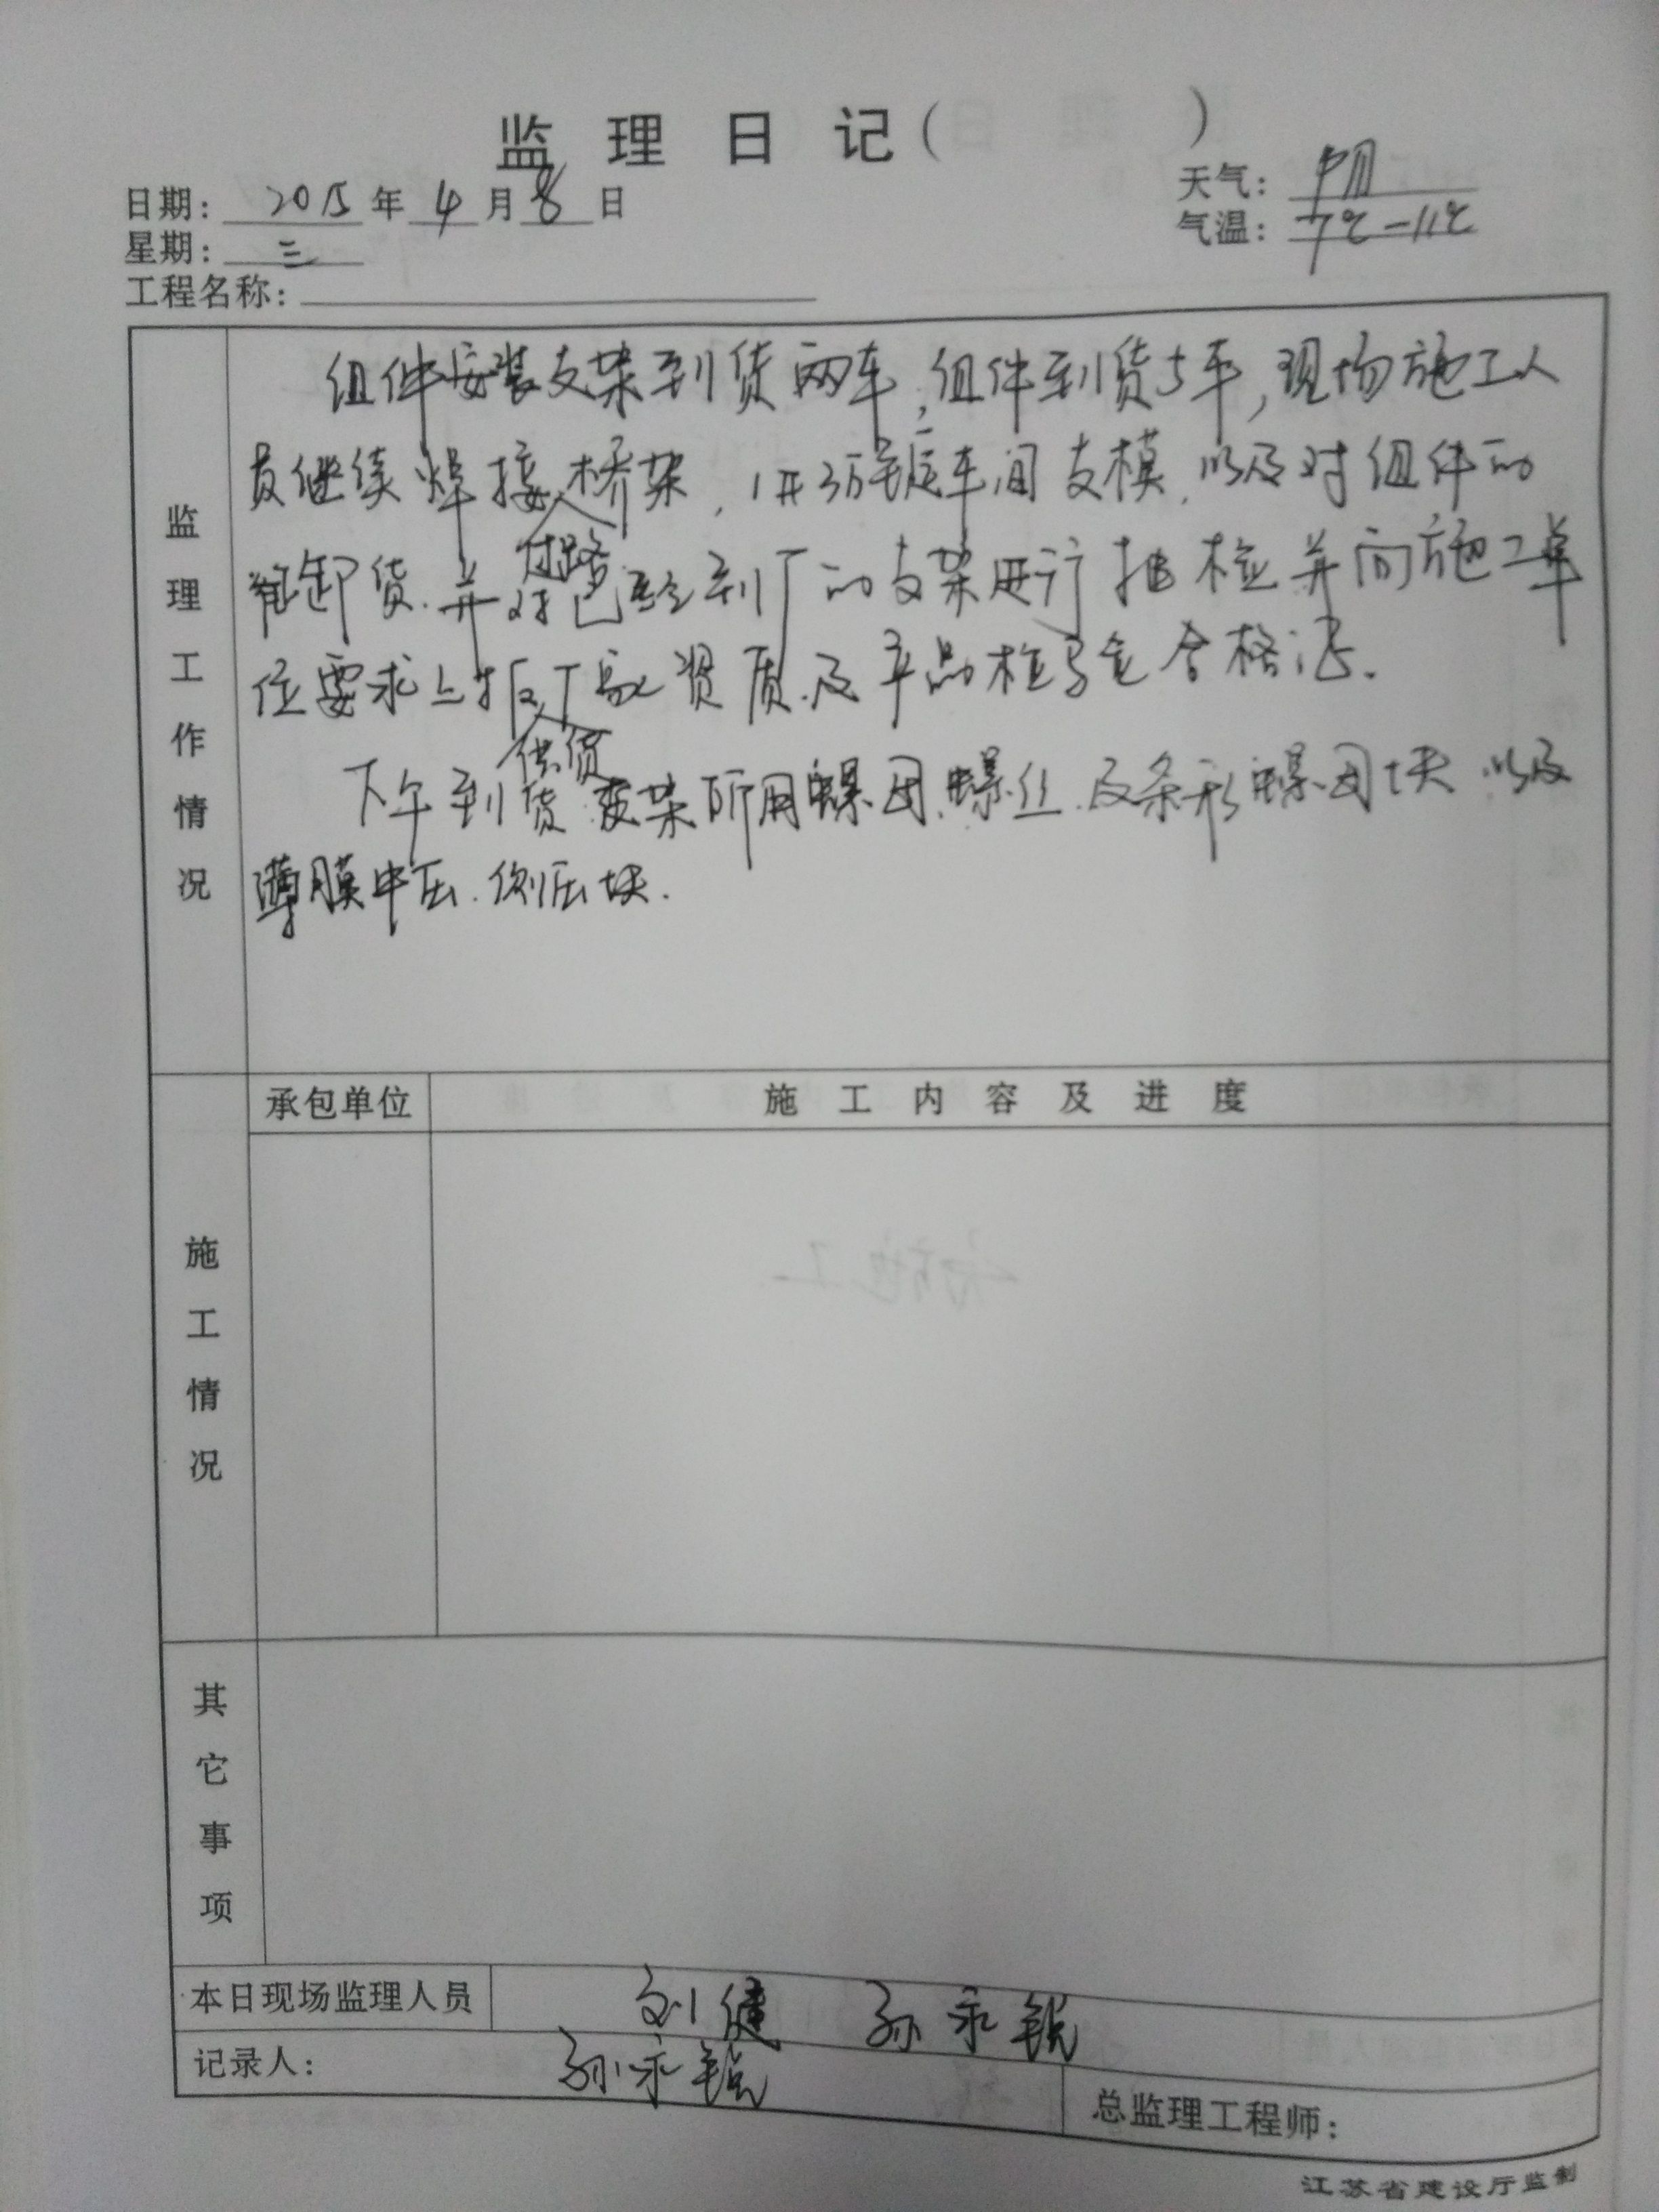 监理日记（ ）
日期：2015年4月8日
天气：阴
星期：三
气温：7℃-11℃
工程名称：
监理工作情况
组件安装支架到货两车，组件到货5车，现场施工人
员继续焊接过路桥架，1#3万锭车间支模，以及对组件的
卸货.并对已经到厂的支架进行抽检并向施工单
位要求上报供货厂家资质.及产品检 合格证.
下午到货支架所用螺母.螺丝.及条形螺母块 以及
薄膜中压.侧压块.
施工情况
承包单位
施工内容及进度
其它事项
本日现场监理人员 刘健 孙永锐
记录人： 孙永锐
总监理工程师：
江苏省建设厅监制